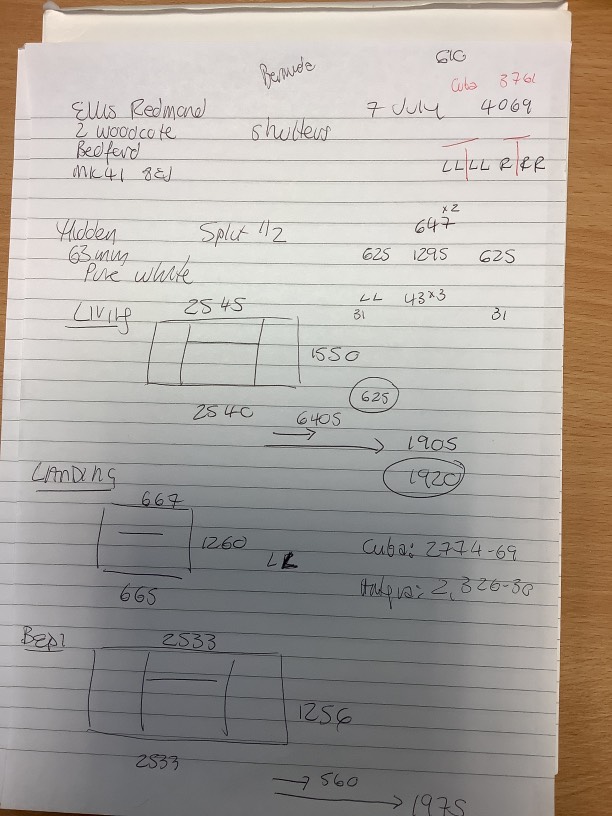 Bermuda 610
Cuba 3761
Ellis Redmond 7 July 4069
2 woodcote shutters
Bedford
MK41 8EJ LL|LL R|RR
647 x2
Hidden Split 1/2
63mm 625 1295 625
Pure white
LL 43x3
31 31
Living 2545
1550
625
2540 6405
1905
1920
LANDING
667
1260 LL Cuba: 2774-69
665 2,326-38
BED1 2533
1256
2533
560
1975